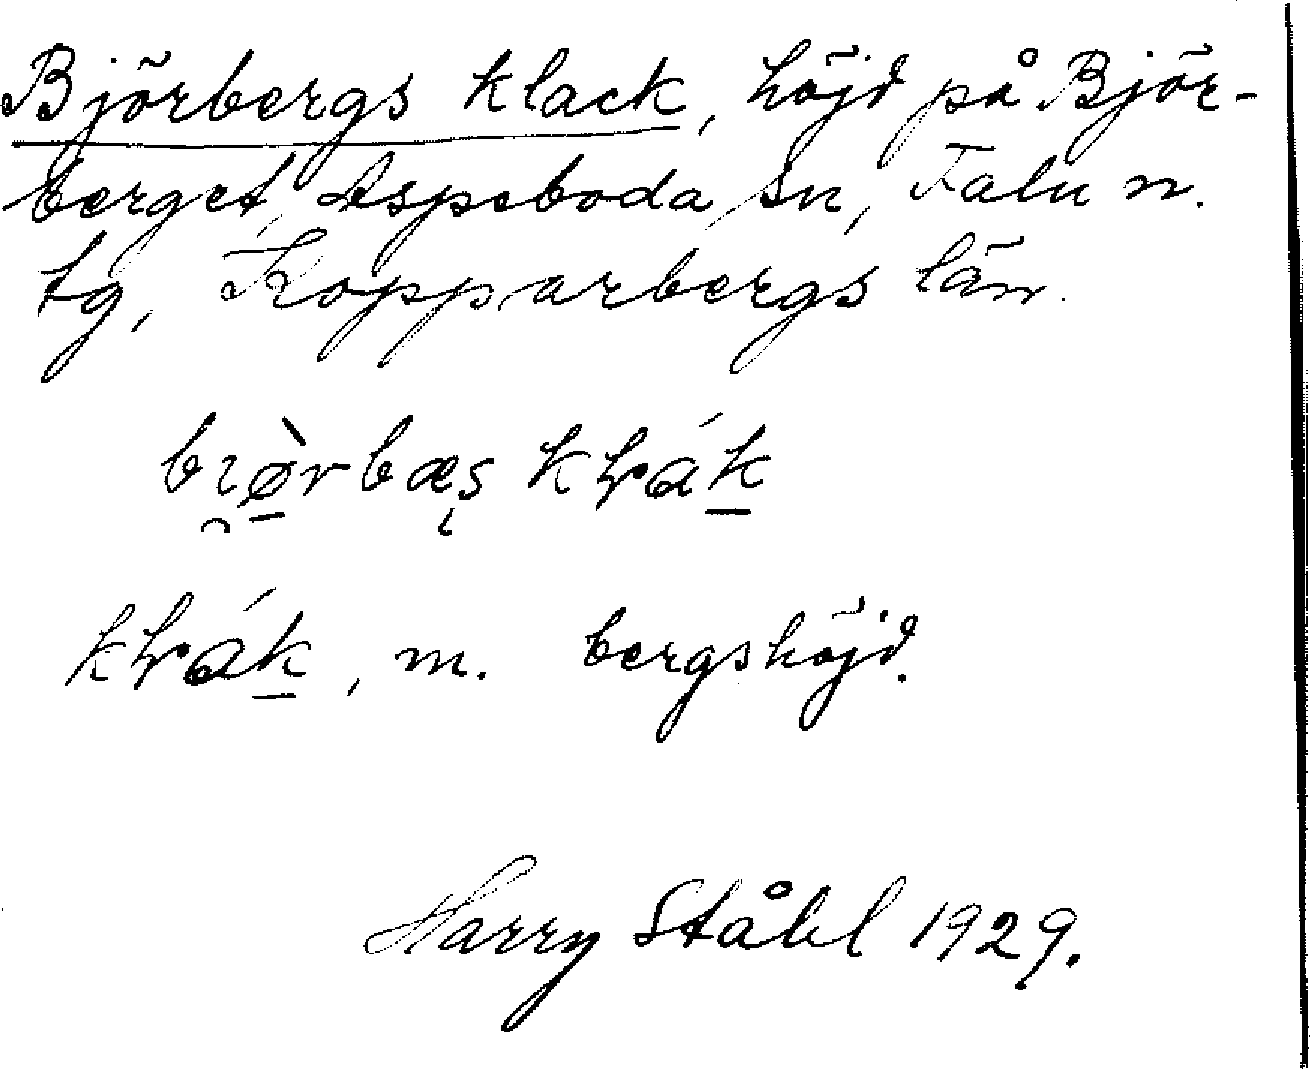 Björbergs klack, höjd på Björ-
berget, Aspeboda sn, Falu n.
tg, Kopparbergs län.
klack, m. bergshöjd.
Harry Ståhl 1929.